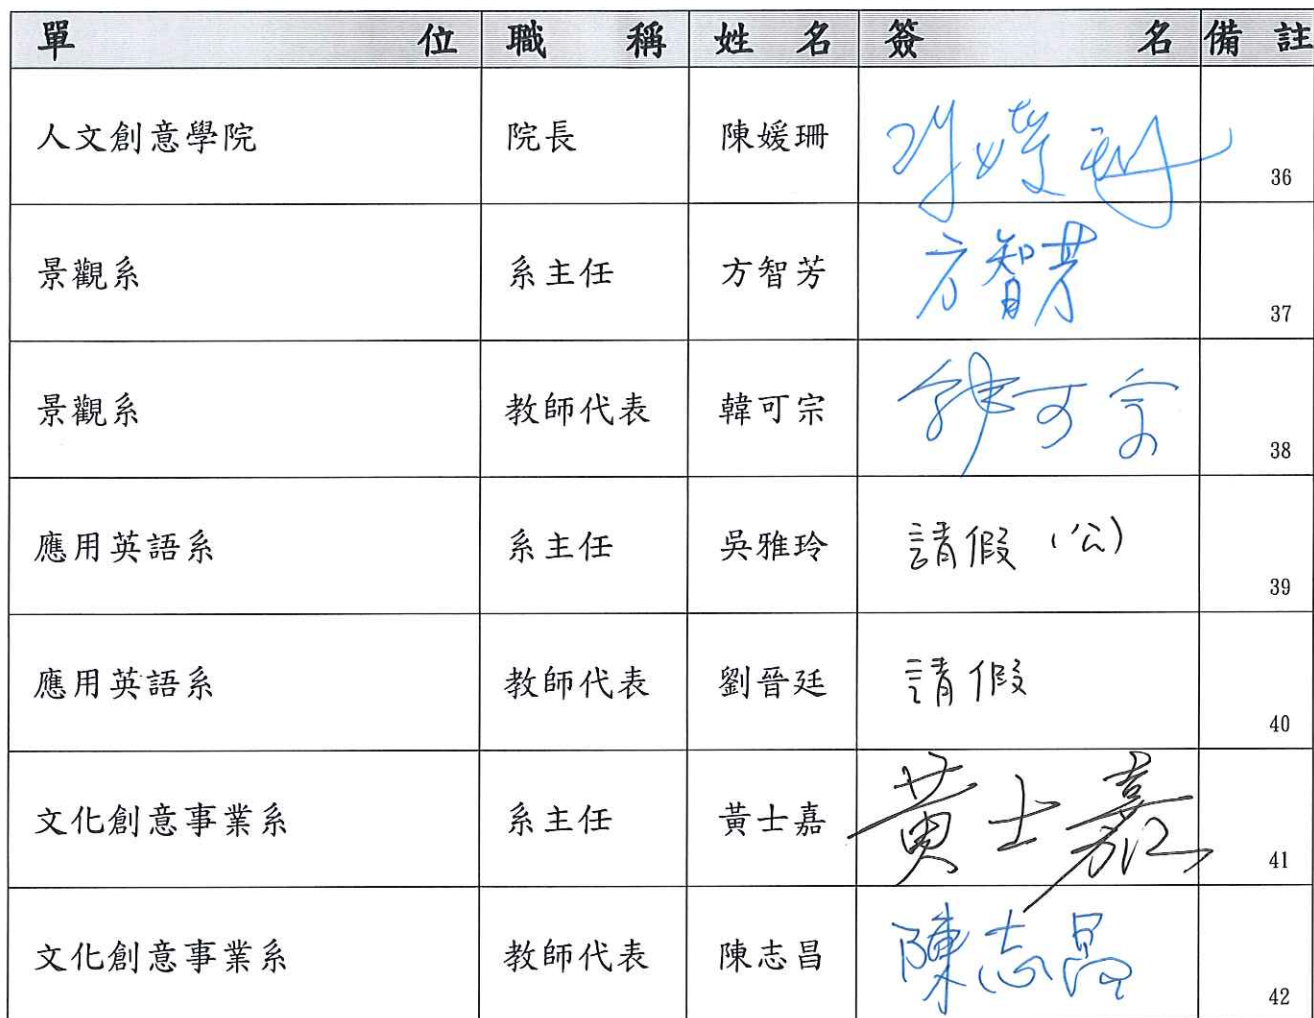 單位 職稱 姓名 簽名 備註
人文創意學院 院長 陳媛珊 陳媛珊 36
景觀系 系主任 方智芳 方智芳 37
景觀系 教師代表 韓可宗 韓可宗 38
應用英語系 系主任 吳雅玲 請假（公） 39
應用英語系 教師代表 劉晉廷 請假 40
文化創意事業系 系主任 黃士嘉 黃士嘉 41
文化創意事業系 教師代表 陳志昌 陳志昌 42